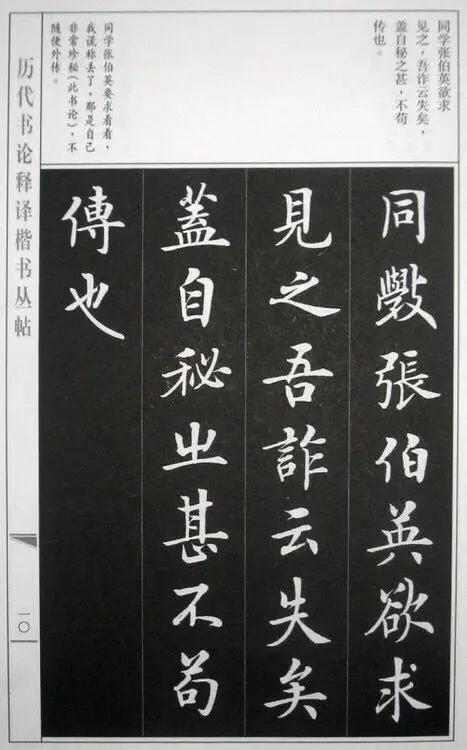 同学张伯英欲求
见之，吾诈云失矣，
盖自秘之甚，不苟
传也。
同学张伯英要求看看，
我谎称丢了。那是自己
非常珍秘(此书论)，不
随便外传。
同斅張伯英欲求
見之吾詐云失矣
蓋自秘之甚不苟
傳也
历代书论释译楷书丛帖
一〇